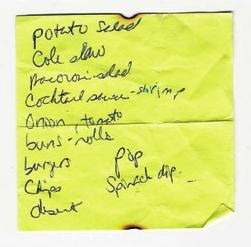 potato salad
Cole slaw
Macoroni-salad
Cocktail sauce-shrimp
Onion, tomato
buns-rolls
burgers
Chips
desert
Pop
Spinach dip